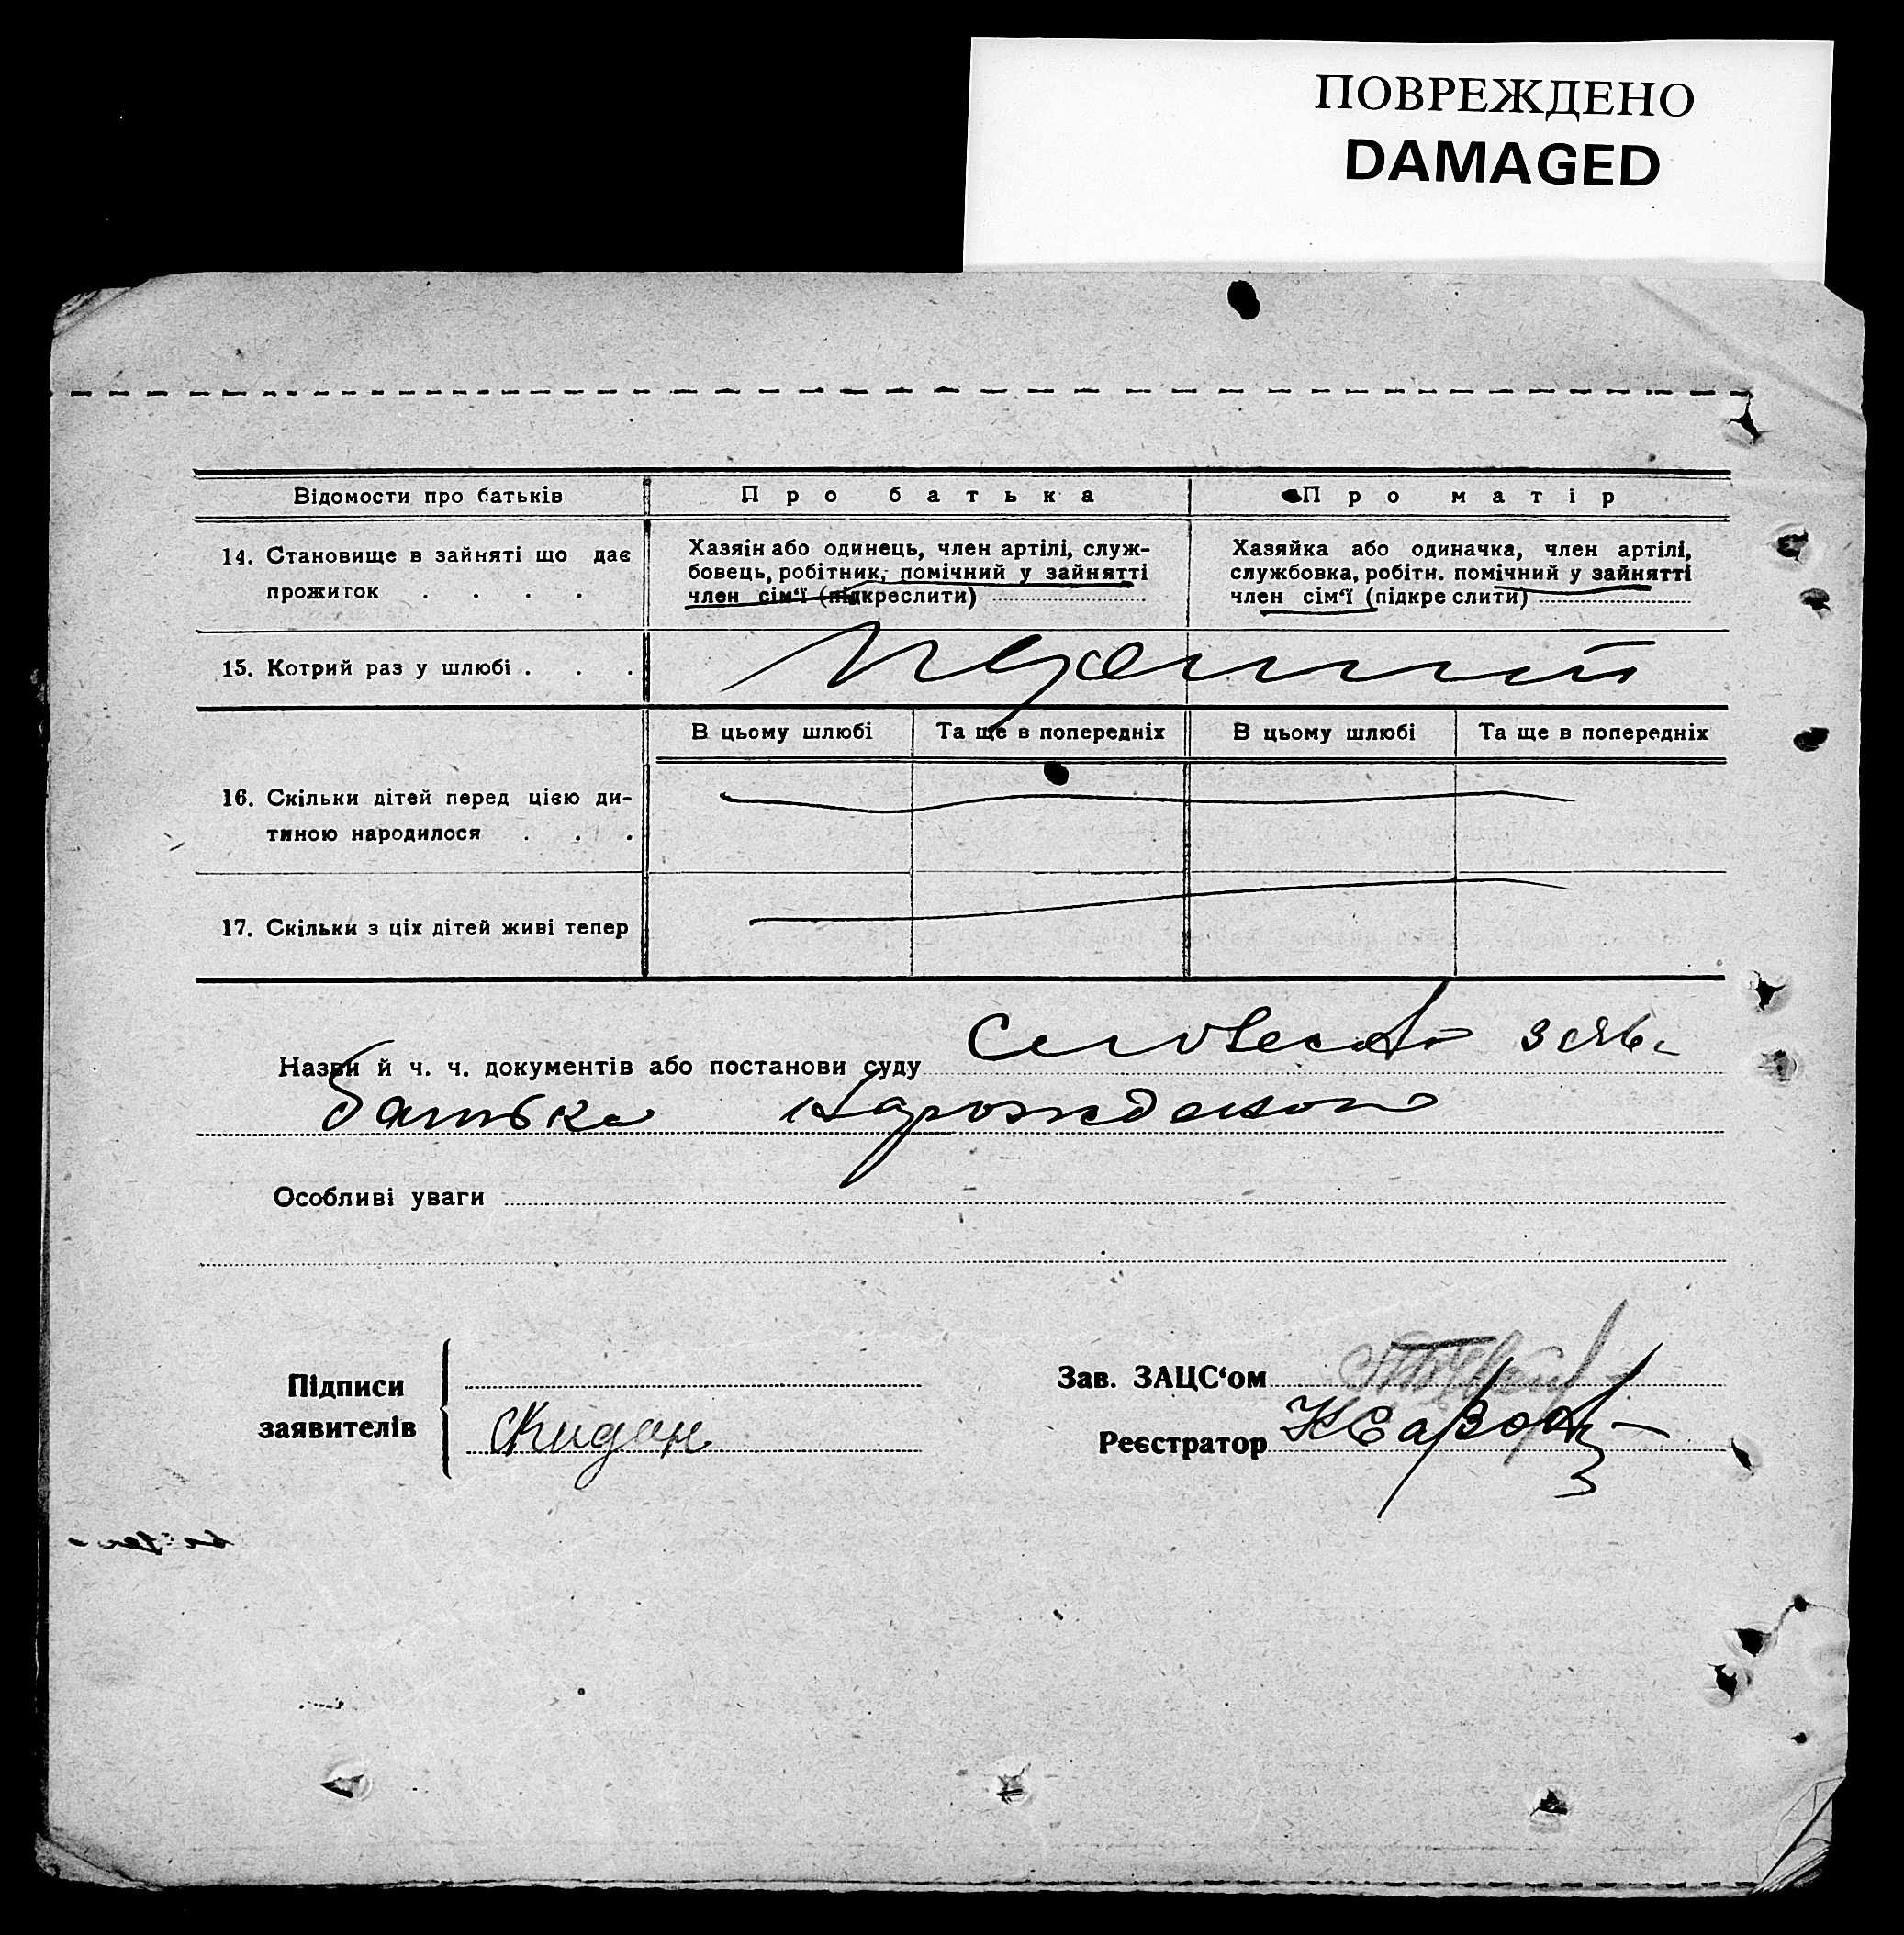 ПОВРЕЖДЕНО
DAMAGED
Відомости про батьків
Про батька
Про матір
14. Становище в зайняті що дає
прожиток . . . .
Хазяін або одинець, член артілі, служ-
бовець, робітник, помічний у зайнятті
член сім'ї (підкреслити)
Хазяйка або одиначка, член артілі,
службовка, робітн. помічний у зайнятті
член сім'ї (підкреслити)
15. Котрий раз у шлюбі . . .
В цьому шлюбі
Та ще в попередніх
В цьому шлюбі
Та ще в попередніх
16. Скільки дітей перед цією ди-
тиною народилося . . .
17. Скільки з ціх дітей живі тепер
Назви й ч. ч. документів або постанови суду
батька
Особливі уваги
Підписи
заявителів
Скидан
Зав. ЗАЦС'ом
Реєстратор